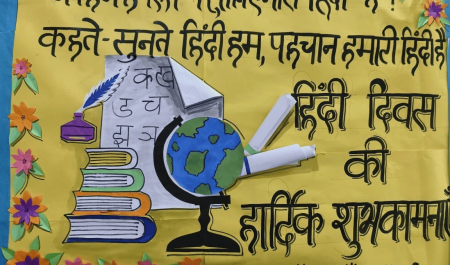 कहते-सुनते हिंदी हम, पहचान हमारी हिंदी है
क
ड च
झ ञ
हिंदी दिवस
की
हार्दिक शुभकामनाएँ